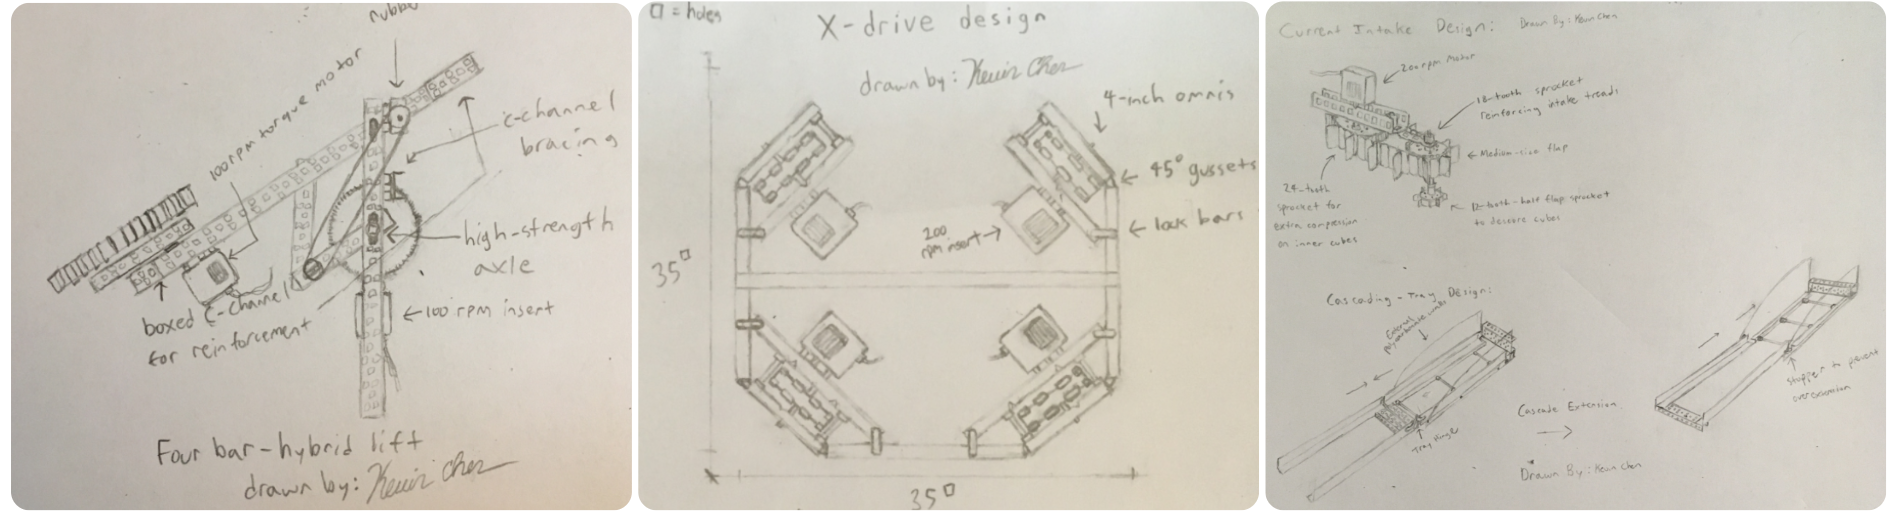 rubber
100rpm torque motor
c-channel
bracing
high-strength
axle
←100 rpm insert
boxed C-channel
for reinforcement
Four bar-hybrid lift
drawn by: Kevin Chen
□ = holes
X-drive design
drawn by: Kevin Chen
4-inch omnis
← 45° gussets
← lock bars
200
rpm insert →
35□
35□
Current Intake Design: Drawn By: Kevin Chen
200rpm Motor
18-tooth sprocket
reinforcing intake treads
← Medium-size flap
24-tooth
sprocket for
extra compression
on inner cubes
12-tooth-half flap sprocket
to descore cubes
Cascading-Tray Design:
External
polycarbonate
Tray Hinge
Cascade Extension
→
Stopper to prevent
over extension
Drawn By: Kevin Chen